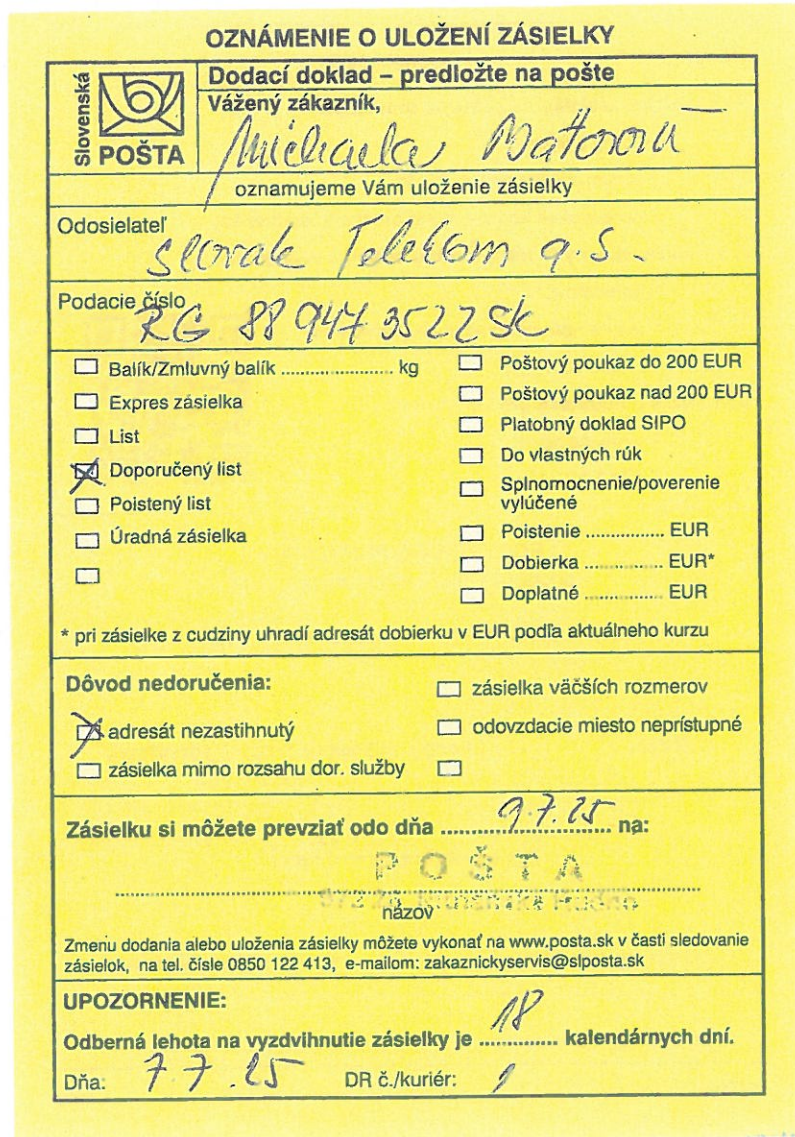 OZNÁMENIE O ULOŽENÍ ZÁSIELKY
Slovenská
POŠTA
Dodací doklad – predložte na pošte
Vážený zákazník,
Michaela
oznamujeme Vám uloženie zásielky
Odosielateľ
Slovak Telekom a.s.
Podacie číslo
RG 88 947 3522 SK
Balík/Zmluvný balík ...................... kg
Expres zásielka
List
Doporučený list
Poistený list
Úradná zásielka
Poštový poukaz do 200 EUR
Poštový poukaz nad 200 EUR
Platobný doklad SIPO
Do vlastných rúk
Splnomocnenie/poverenie
vylúčené
Poistenie ................ EUR
Dobierka ................ EUR*
Doplatné ................ EUR
* pri zásielke z cudziny uhradí adresát dobierku v EUR podľa aktuálneho kurzu
Dôvod nedoručenia:
zásielka väčších rozmerov
adresát nezastihnutý
odovzdacie miesto neprístupné
zásielka mimo rozsahu dor. služby
Zásielku si môžete prevziať odo dňa 9.7.25 na:
POŠTA
názov
Zmenu dodania alebo uloženia zásielky môžete vykonať na www.posta.sk v časti sledovanie
zásielok, na tel. čísle 0850 122 413, e-mailom: zakaznickyservis@slposta.sk
UPOZORNENIE:
Odberná lehota na vyzdvihnutie zásielky je 18 kalendárnych dní.
Dňa: 7.7.25 DR č./kuriér: 1